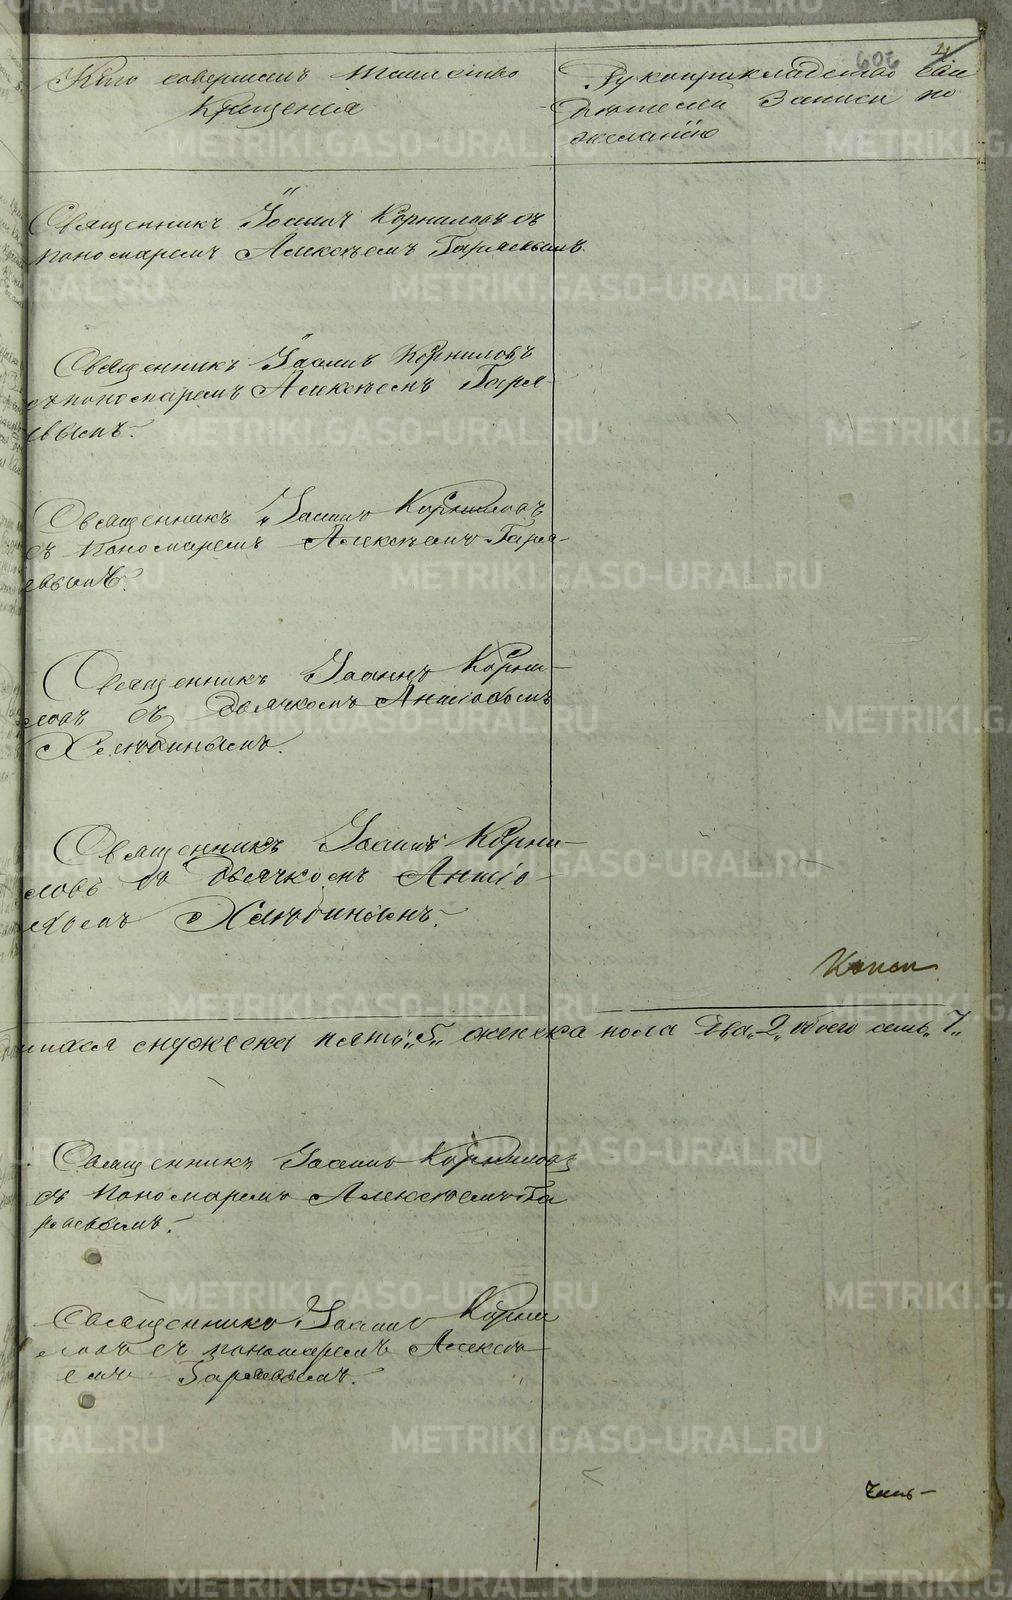 Кто совершалъ таинство
Крещенія
Рукоприкладство сви
дѣтелей записи по
желанію
4
602
Священникъ Іоаннъ Корниловъ съ
пономаремъ Алексѣемъ Гаряевымъ.
Священникъ Іоаннъ Корниловъ
съ пономаремъ Алексѣемъ Гаря-
евымъ.
Священникъ Іоаннъ Корниловъ
съ пономаремъ Алексѣемъ Гаря-
евымъ.
Священникъ Іоаннъ Корни-
ловъ съ дьячкомъ Антіохомъ
Хлюбинымъ.
Священникъ Іоаннъ Корни-
ловъ съ дьячкомъ Антіо-
хомъ Хлюбинымъ.
Копол
мужеска пять „5„ женска пола два „2„ обоего семь „7„
Священникъ Іоаннъ Корниловъ
съ пономаремъ Алексѣемъ Га
ряевымъ.
Священникъ Іоаннъ Корни
ловъ съ пономаремъ Алексѣ-
емъ Гаряевымъ.
METRIKI.GASO-URAL.RU